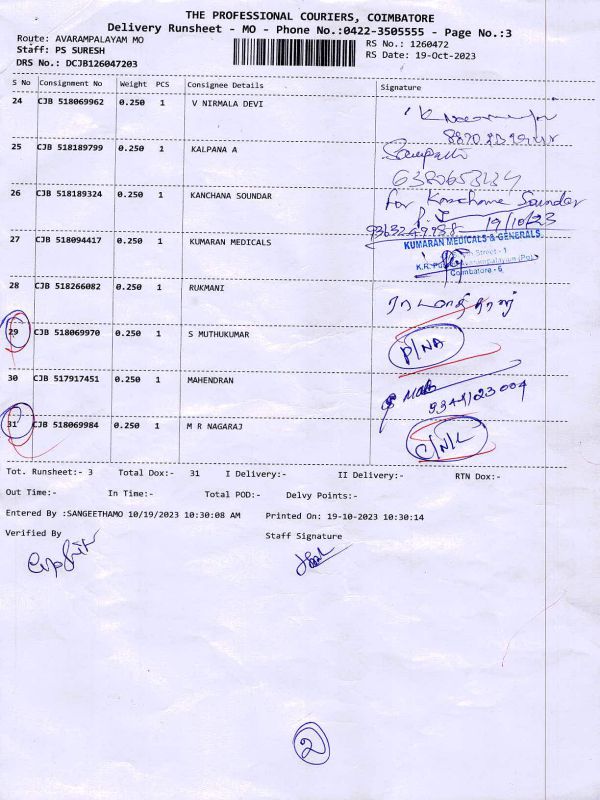 THE PROFESSIONAL COURIERS, COIMBATORE
Delivery Runsheet - MO - Phone No.:0422-3505555 - Page No.:3
Route: AVARAMPALAYAM MO
Staff: PS SURESH
DRS No.: DCJB126047203
RS No.: 1260472
RS Date: 19-Oct-2023
S No Consignment No Weight PCS Consignee Details Signature
24 CJB 518069962 0.250 1 V NIRMALA DEVI
25 CJB 518189799 0.250 1 KALPANA A
26 CJB 518189324 0.250 1 KANCHANA SOUNDAR for Kanchana Soundar
19/10/23
27 CJB 518094417 0.250 1 KUMARAN MEDICALS KUMARAN MEDICALS & GENERALS
Street - 1
Coimbatore - 6
28 CJB 518266082 0.250 1 RUKMANI
29 CJB 518069970 0.250 1 S MUTHUKUMAR P/NA
30 CJB 517917451 0.250 1 MAHENDRAN
31 CJB 518069984 0.250 1 M R NAGARAJ C/N/L
Tot. Runsheet:- 3 Total Dox:- 31 I Delivery:- II Delivery:- RTN Dox:-
Out Time:- In Time:- Total POD:- Delvy Points:-
Entered By :SANGEETHAMO 10/19/2023 10:30:08 AM Printed On: 19-10-2023 10:30:14
Verified By Staff Signature
2